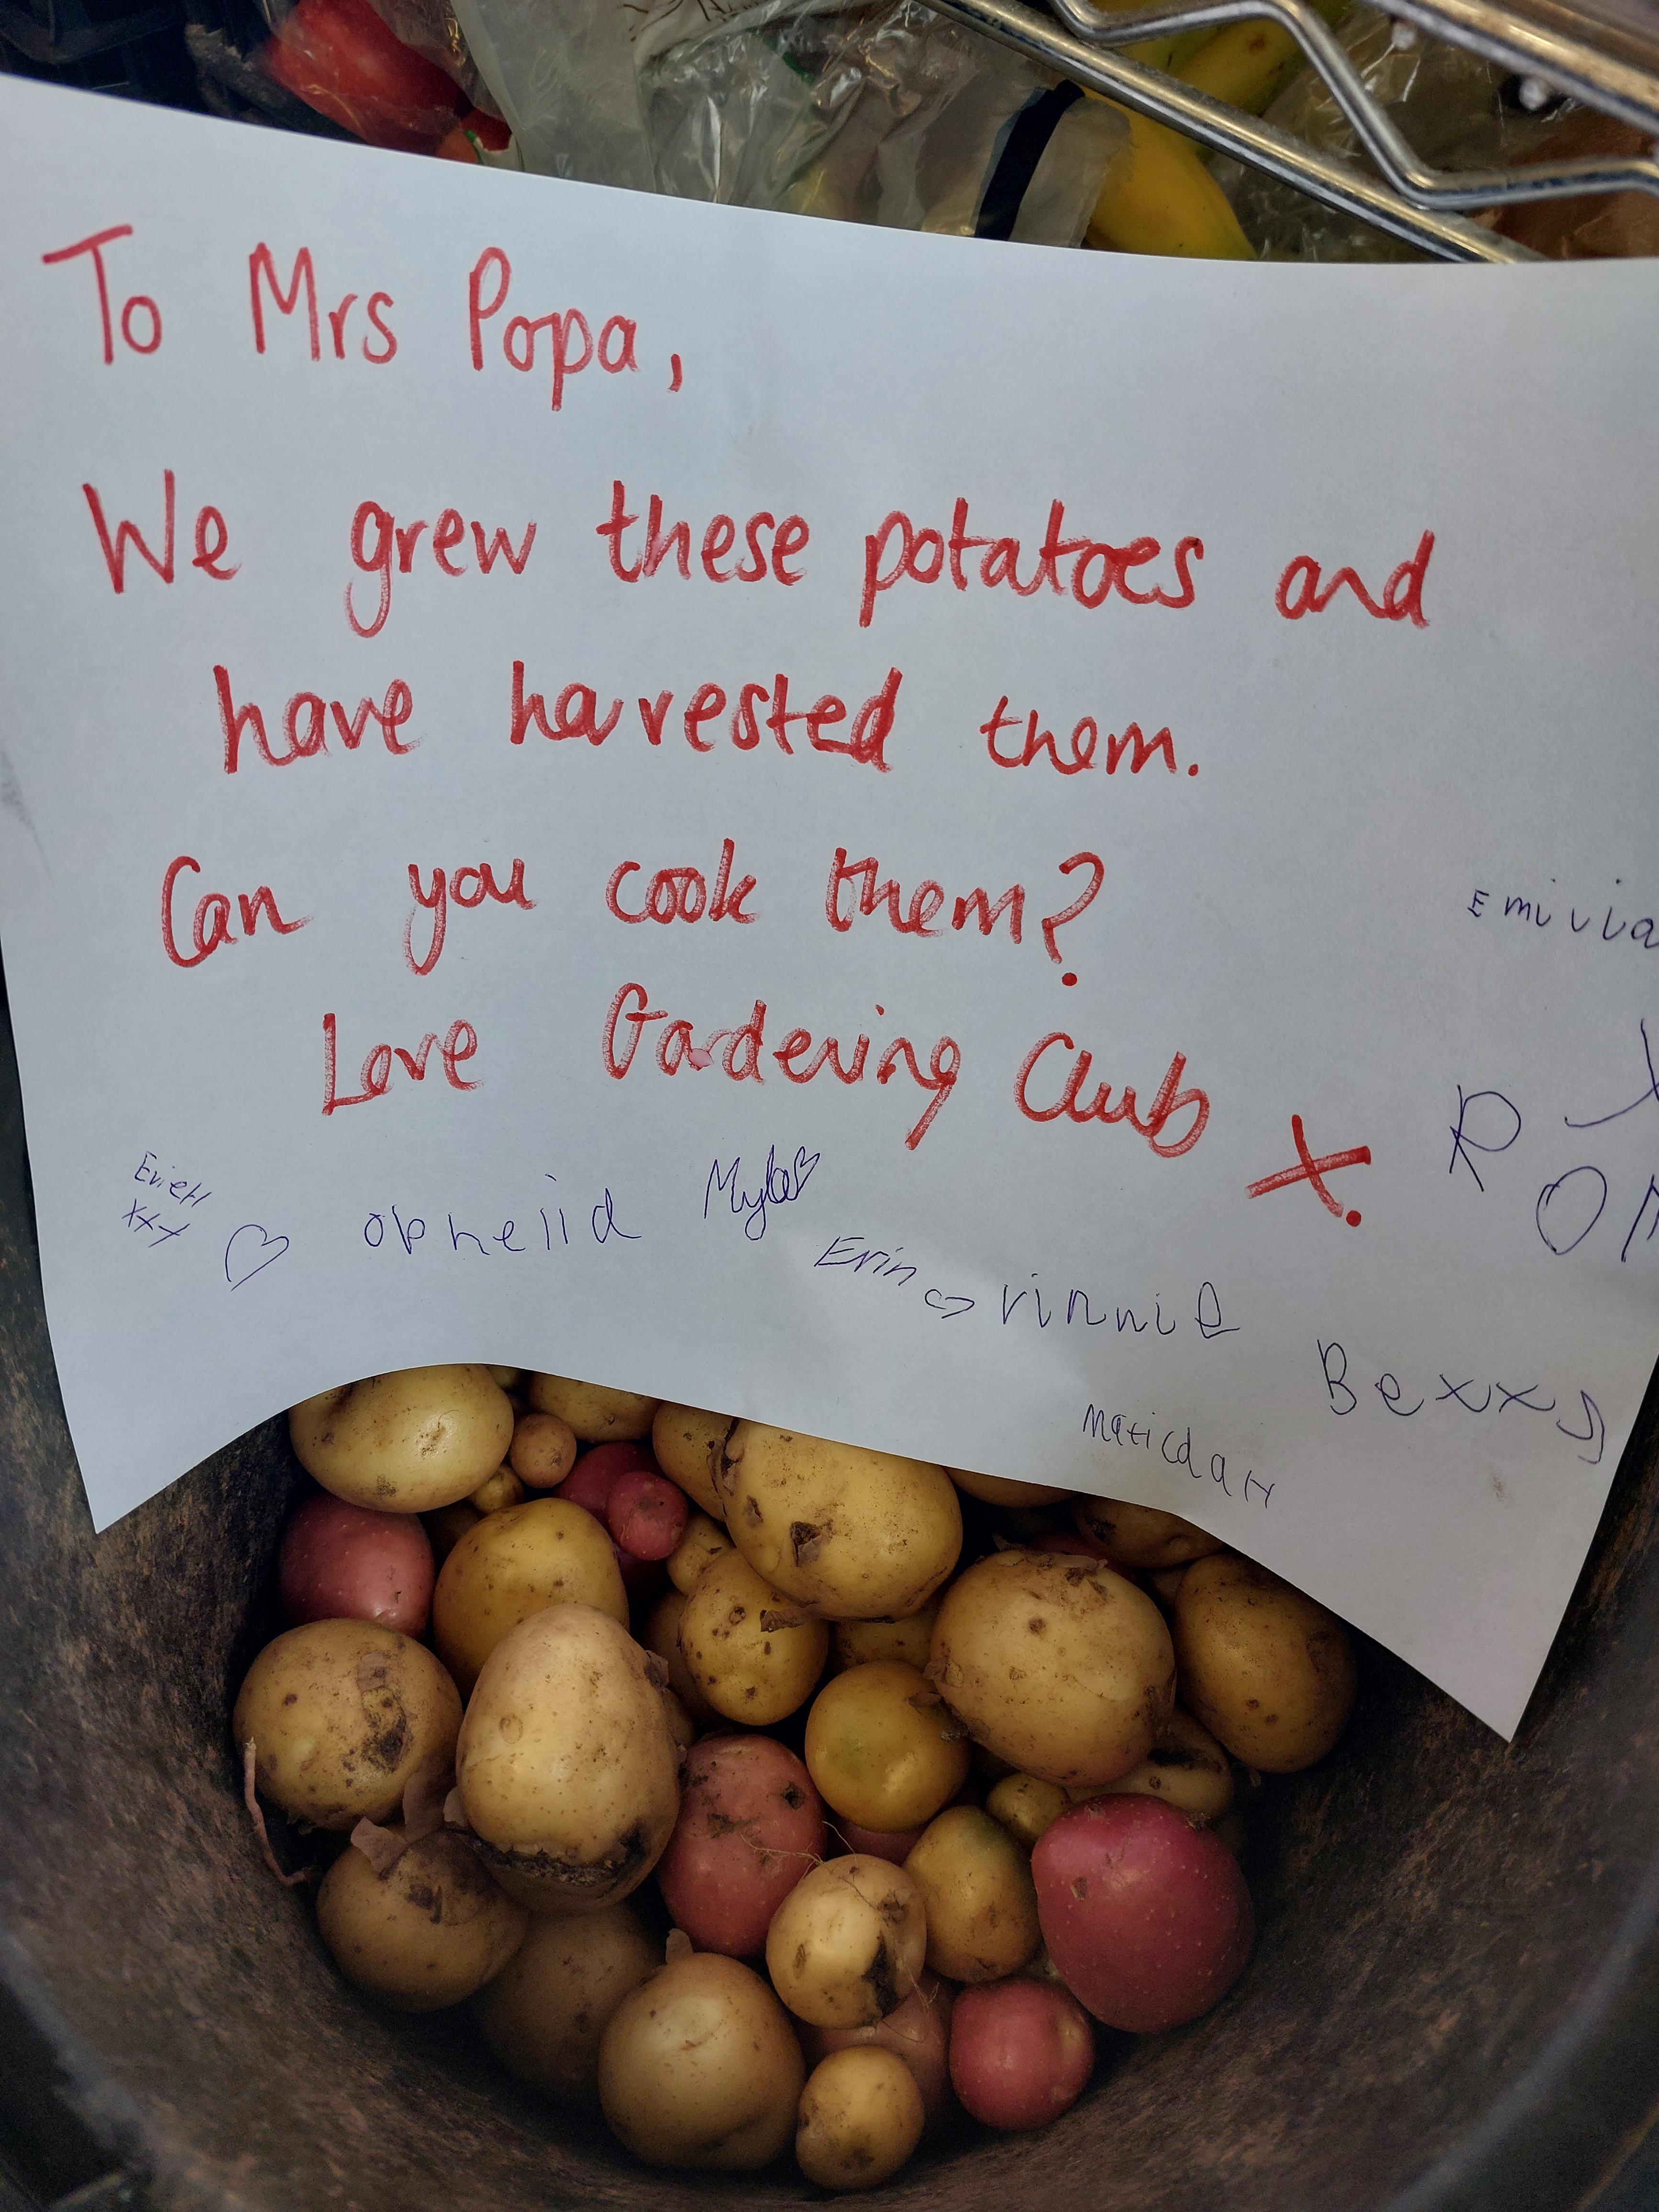 To Mrs Popa,
We grew these potatoes and
have harvested them.
Can you cook them?
Love Gardening Club x.
Emillia
R
Evie H
xxx
Opheliia
Myla
Erin
vinnie
Bexxs
Matilda H